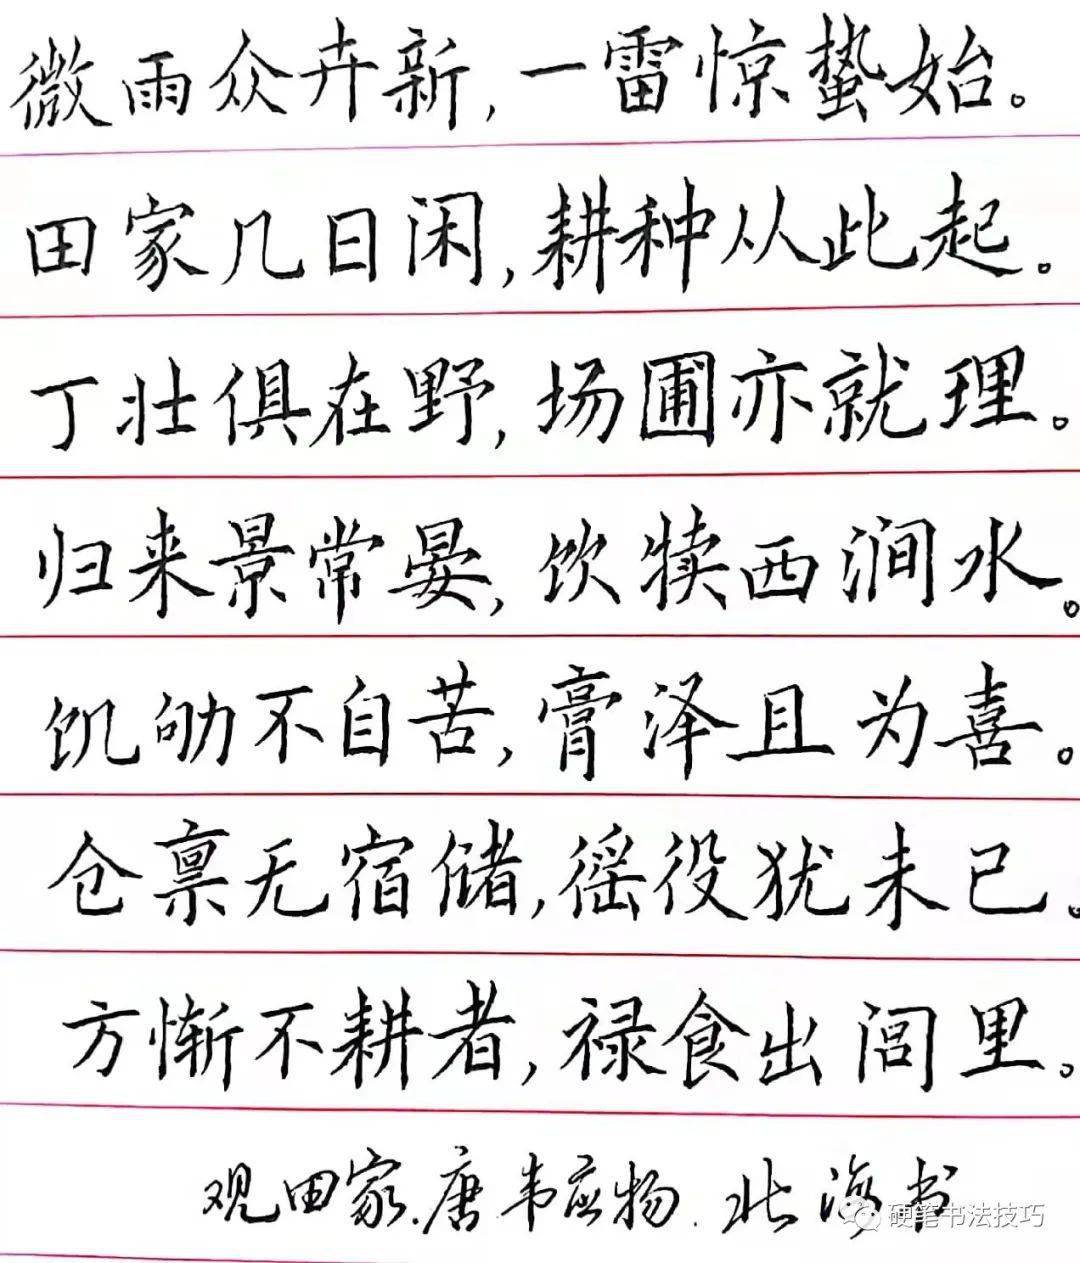 微雨众卉新,一雷惊蛰始。
田家几日闲,耕种从此起。
丁壮俱在野,场圃亦就理。
归来景常晏,饮犊西涧水。
饥劬不自苦,膏泽且为喜。
仓禀无宿储,徭役犹未已。
方惭不耕者,禄食出闾里。
观田家.唐韦应物.北海书
硬笔书法技巧